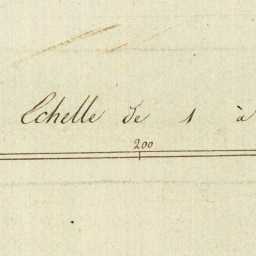 Echelle de 1 à
200